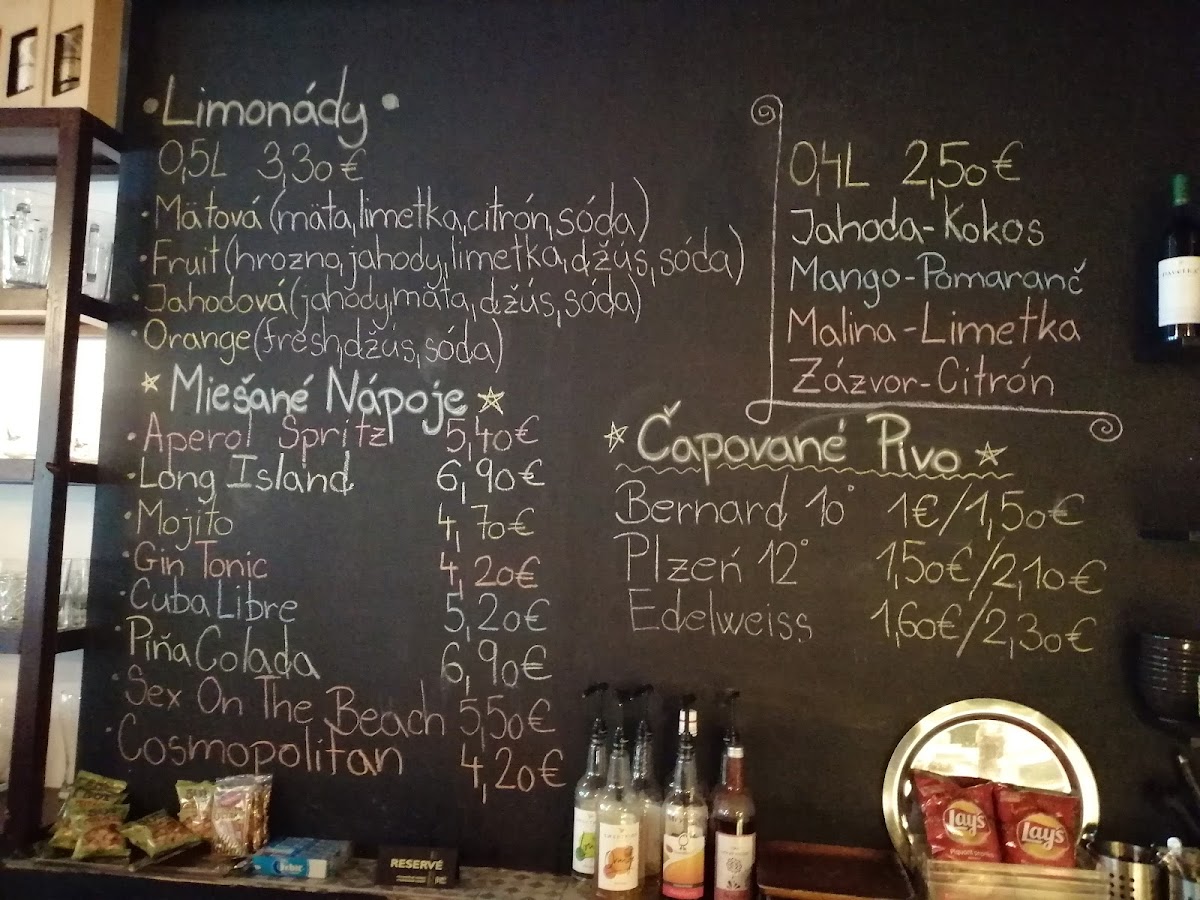 •Limonády•
0,5L 3,30€
•Mätová (mäta, limetka, citrón, sóda)
•Fruit (hrozno, jahody, limetka, džús, sóda)
•Jahodová (jahody, mäta, džús, sóda)
•Orange (fresh, džús, sóda)
Miešané Nápoje
•Aperol Spritz 5,40€
•Long Island 6,90€
•Mojito 4,70€
•Gin Tonic 4,20€
•Cuba Libre 5,20€
•Piňa Colada 6,90€
•Sex On The Beach 5,50€
•Cosmopolitan 4,20€
0,4L 2,50€
Jahoda-Kokos
Mango-Pomaranč
Malina-Limetka
Zázvor-Citrón
Čapované Pivo
Bernard 10° 1€/1,50€
Plzeň 12° 1,50€/2,10€
Edelweiss 1,60€/2,30€
RESERVÉ
Lay's
Lay's